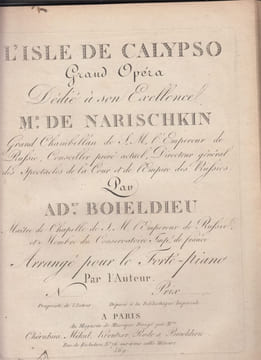 L'ISLE DE CALYPSO
Grand Opéra
Dédié à son Excellence
Mr. DE NARISCHKIN
Grand Chambellan de S. M. l'Empereur de
Russie, Conseiller privé actuel, Directeur général
des Spectacles de la Cour et de l'Empire des Russies.
Par
AD.N BOIELDIEU
Maitre de Chapelle de S. M. l'Empereur de Russie
et Membre du Conservatoire Imp. de france
Arrangé pour le Forté-piano
Par l'Auteur.
N Prix
Propriété de l'Auteur Déposé à la Bibliothèque Impériale
A PARIS
Au Magasin de Musique Dirigé par MM.
Chérubini, Méhul, Kreutzer, Rode, & Boieldieu
Rue de Richelieu